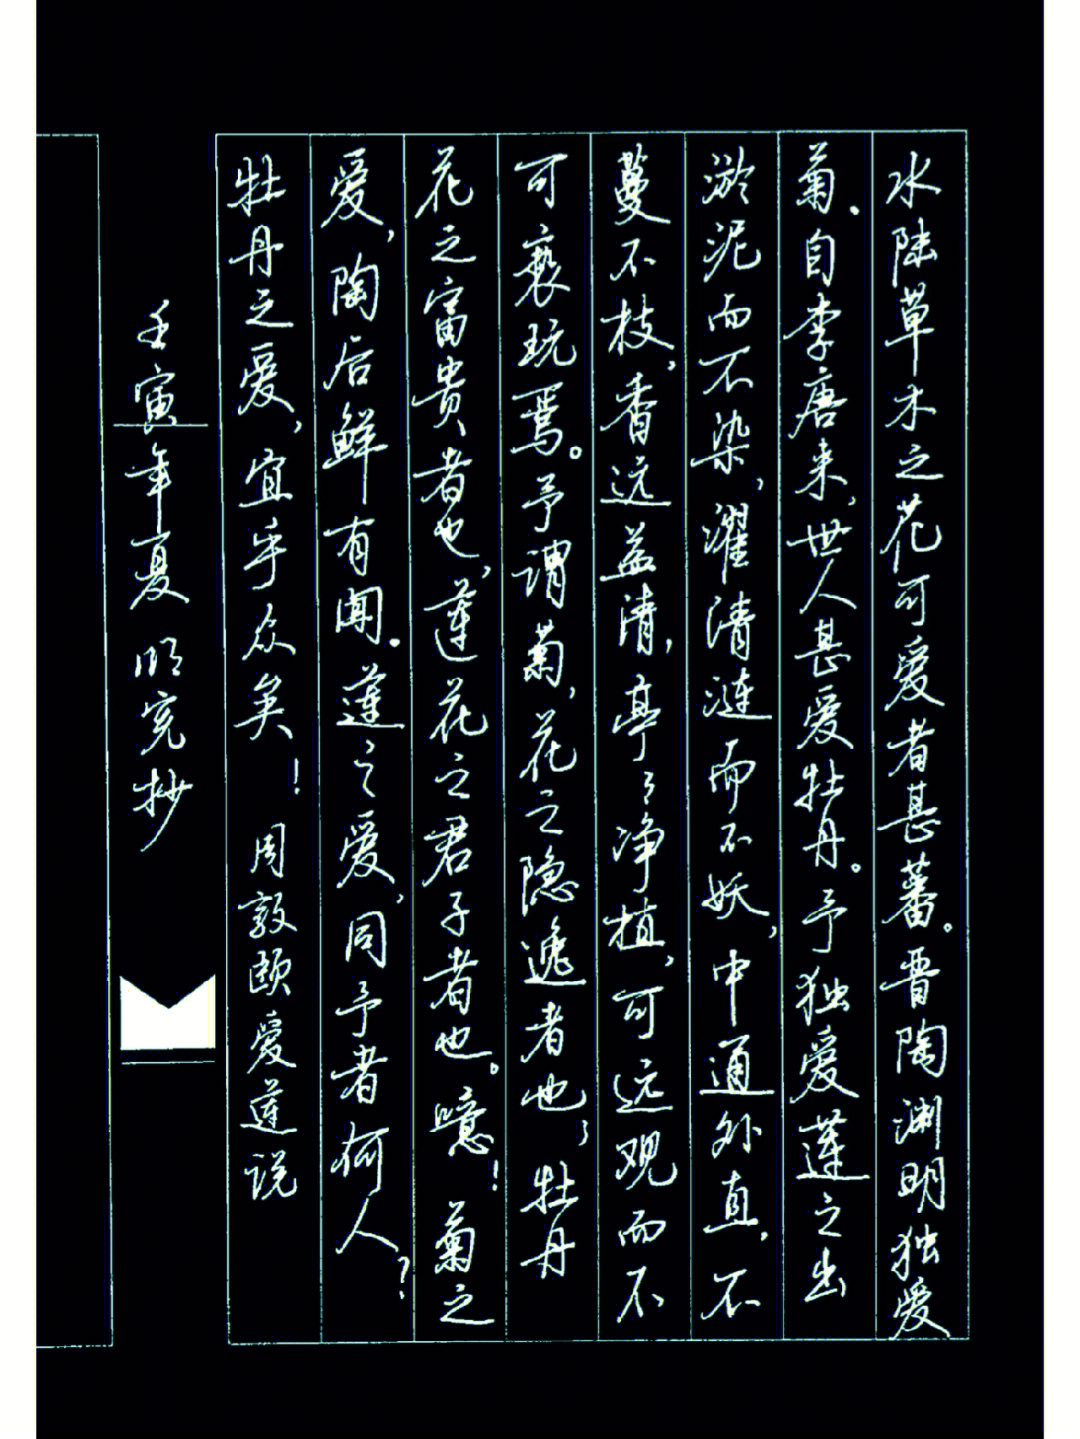 水陆草木之花可爱者甚蕃。晋陶渊明独爱
菊。自李唐来,世人甚爱牡丹。予独爱莲之出
淤泥而不染,濯清涟而不妖,中通外直,不
蔓不枝,香远益清,亭々净植,可远观而不
可亵玩焉。予谓菊,花之隐逸者也,牡丹
花之富贵者也,莲花之君子者也。噫!菊之
爱,陶后鲜有闻。莲之爱,同予者何人?
牡丹之爱,宜乎众矣! 周敦颐爱莲说
壬寅年夏 明宽抄